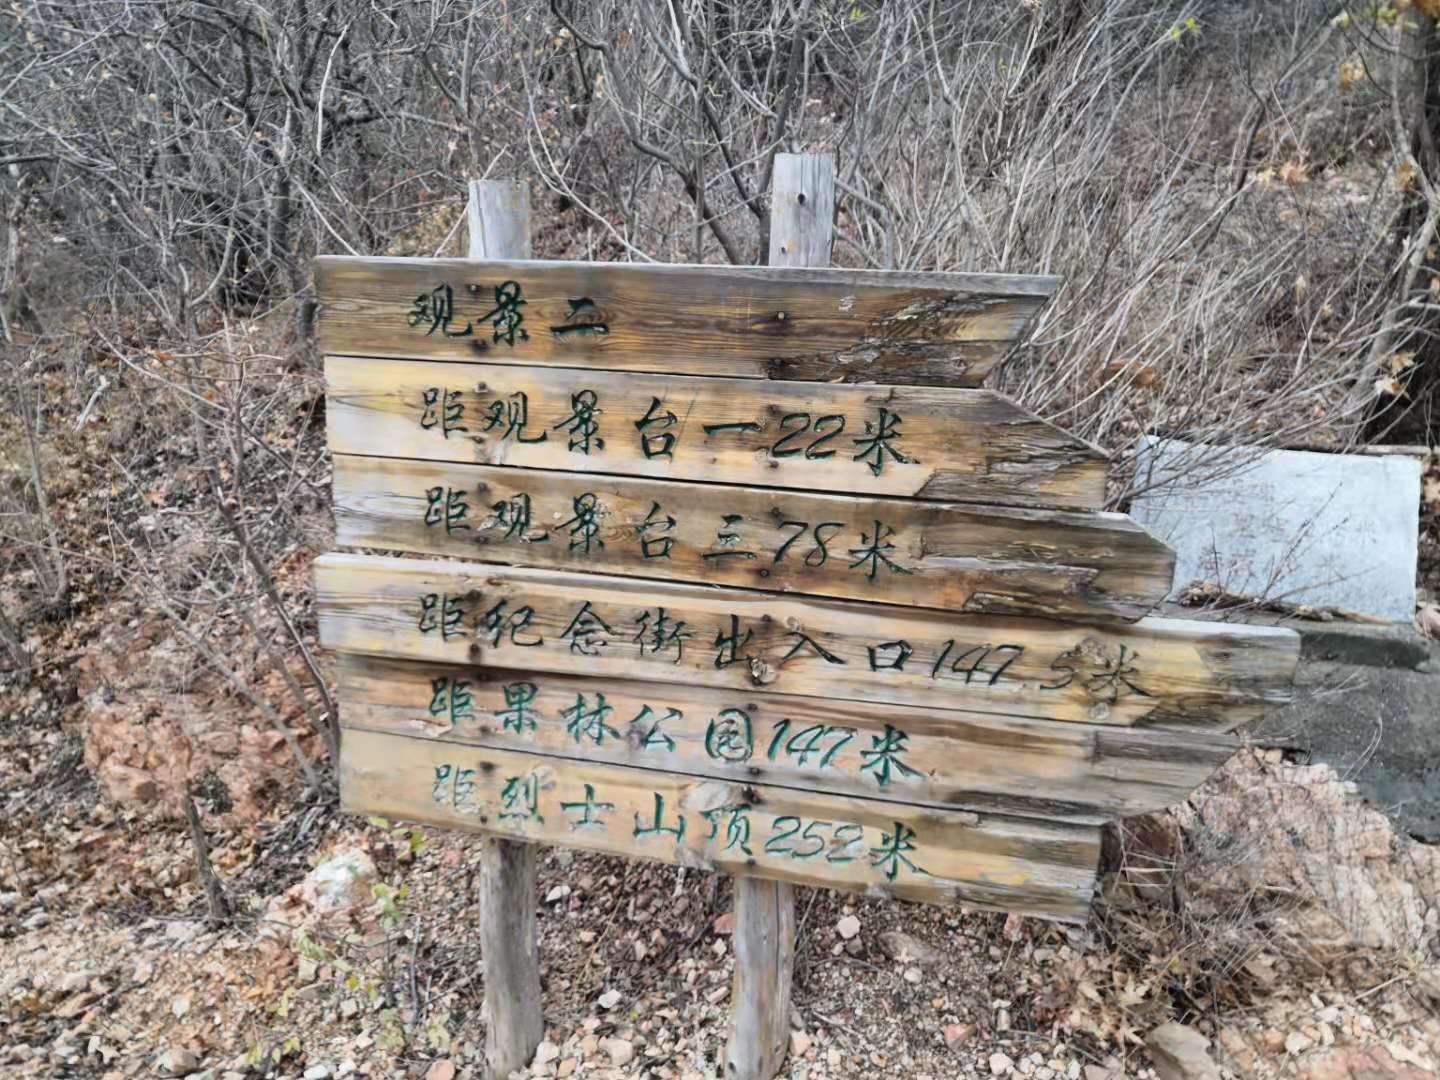 观景二
距观景台一22米
距观景台三78米
距纪念街出入口147.5米
距果林公园147米
距烈士山顶252米